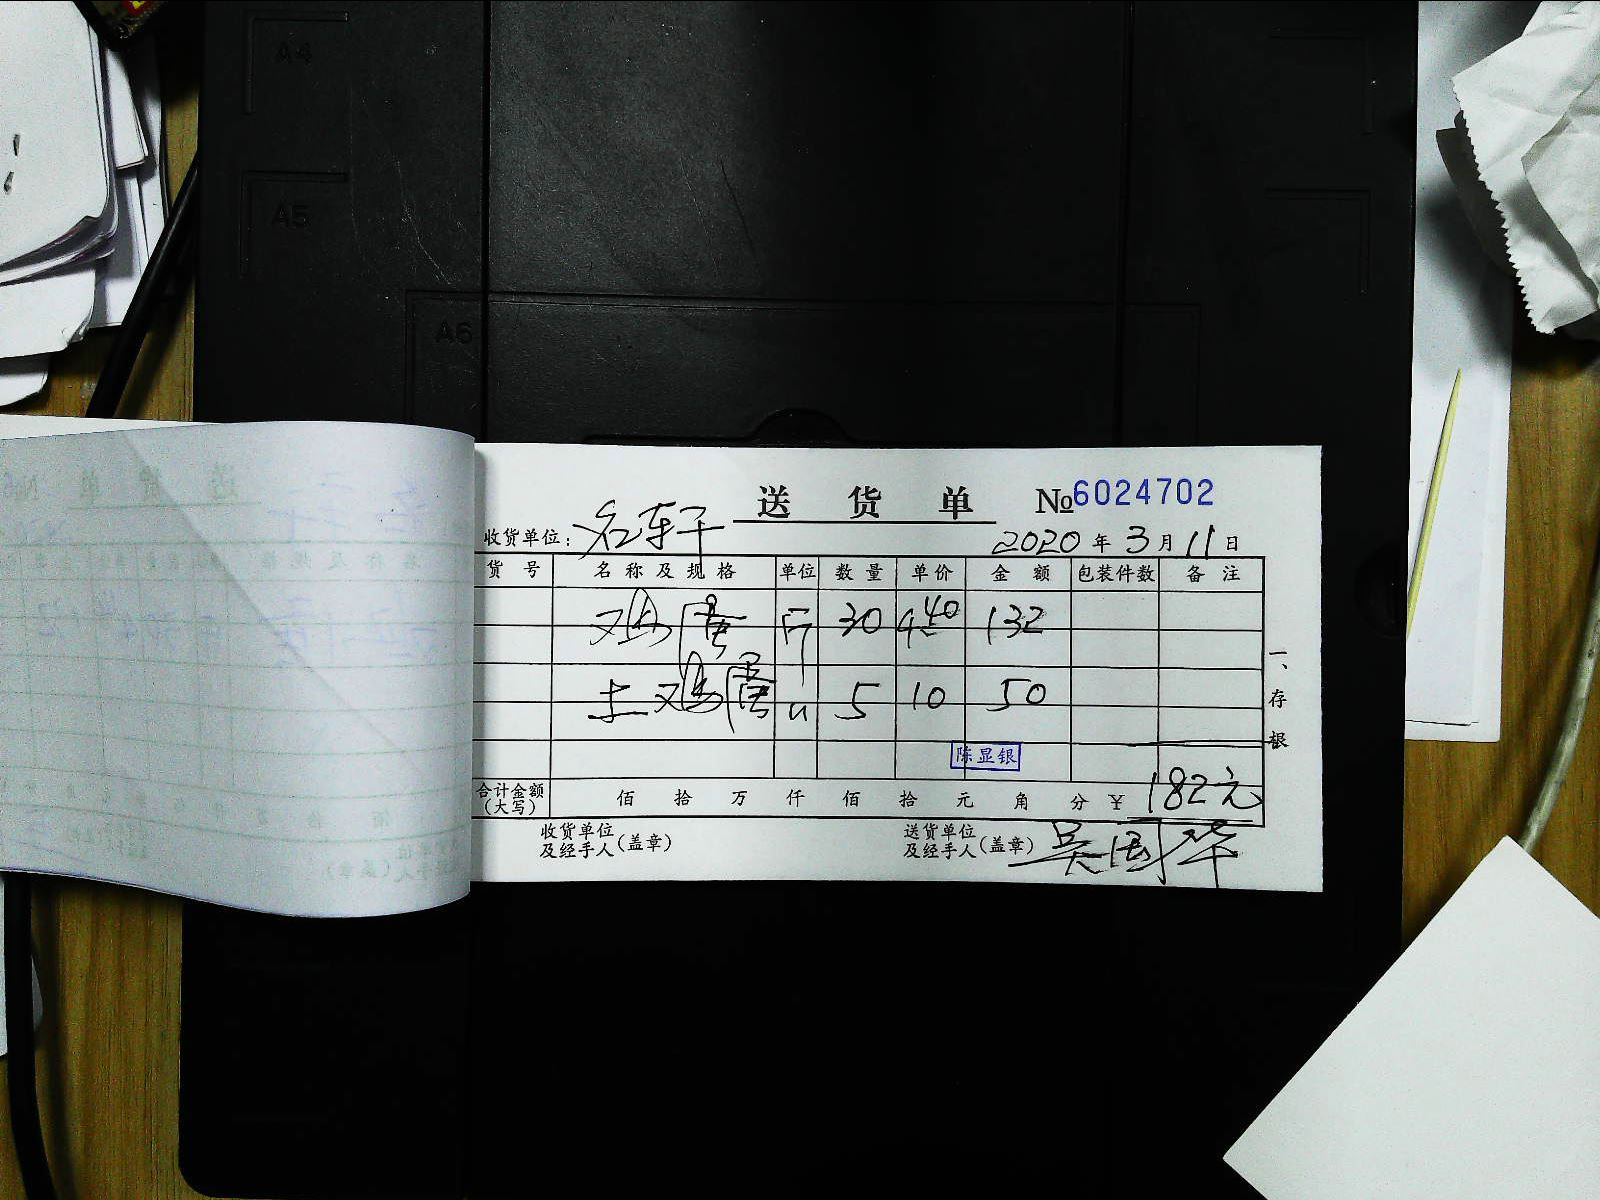 A4
A5
A6
送货单 №6024702
收货单位: 名轩 2020年3月11日
货号 名称及规格 单位 数量 单价 金额 包装件数 备注
鸡蛋 斤 30 4.40 132
土鸡蛋 〃 5 10 50
陈显银
合计金额(大写) 佰 拾 万 仟 佰 拾 元 角 分 ¥ 182元
收货单位及经手人(盖章) 送货单位及经手人(盖章) 吴国华
一、存根